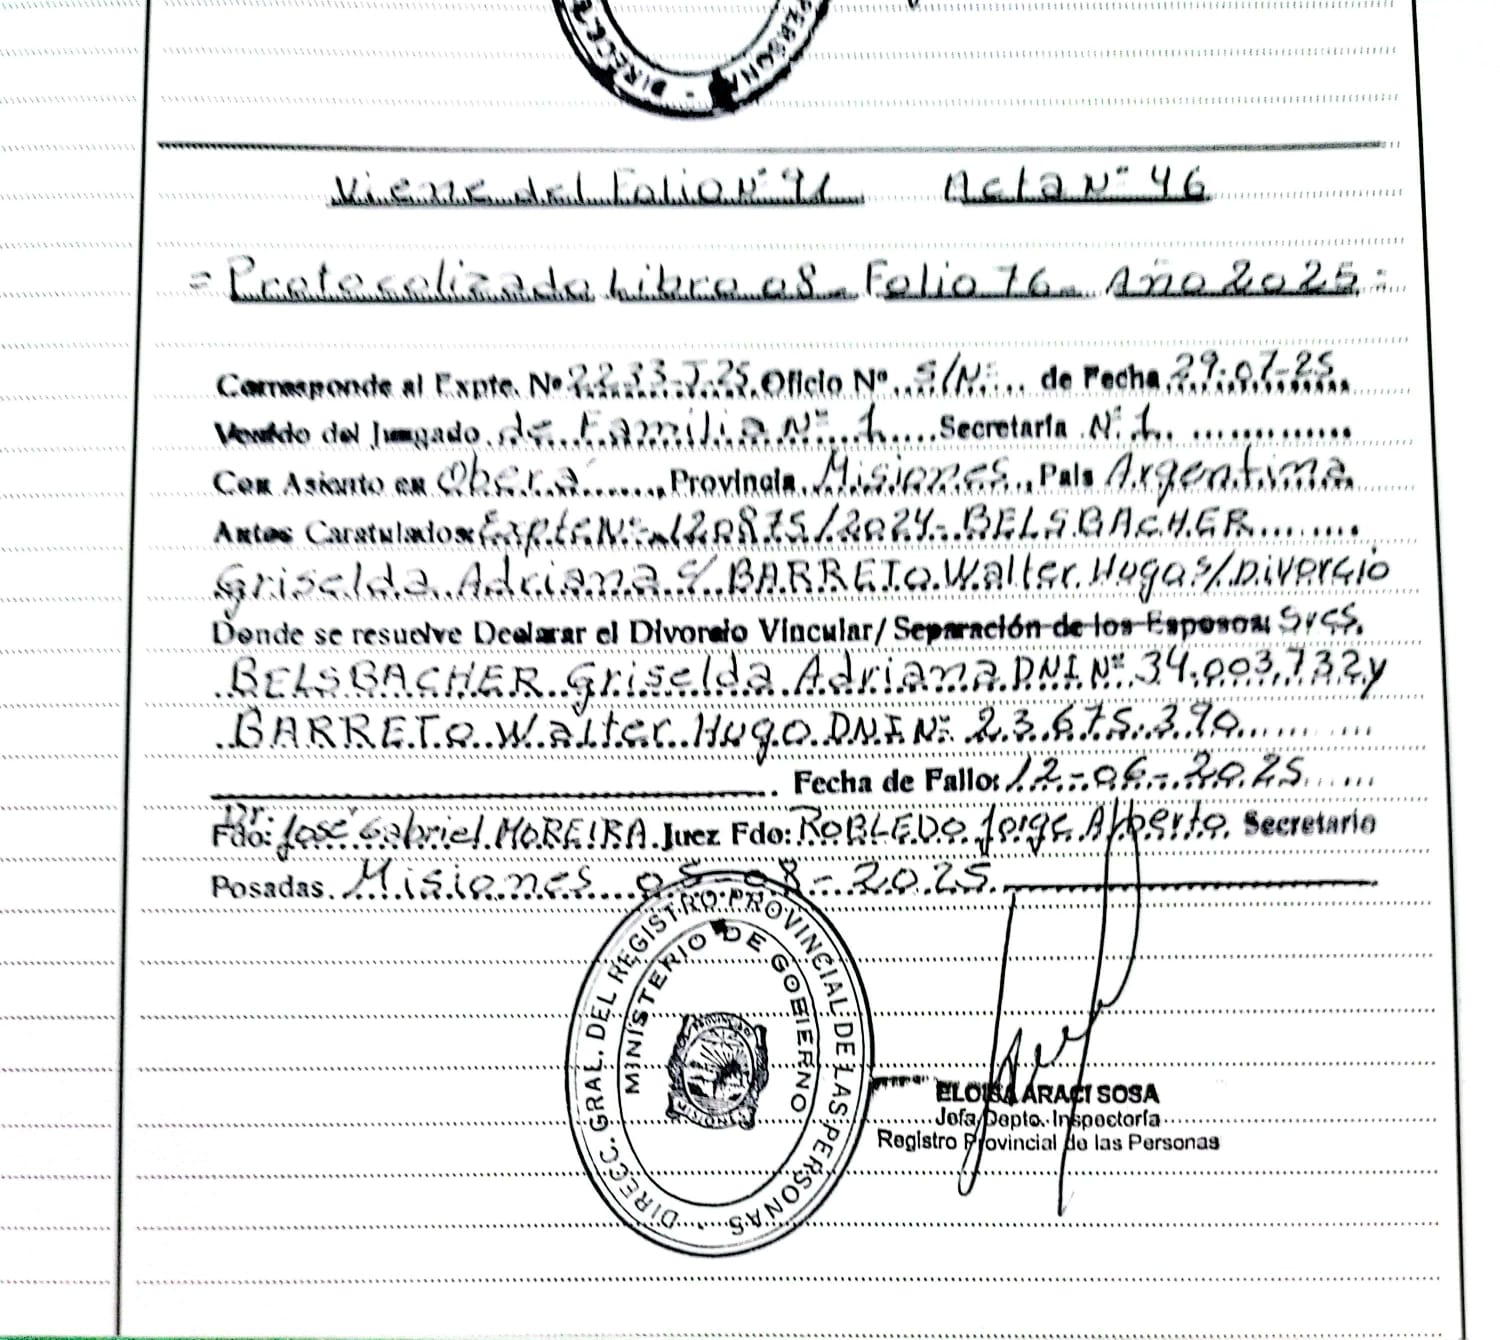 DIRECC
PERSONA
Viene del Folio Nº 91 Acta Nº 46
= Protocolizado Libro 08 - Folio 76 - Año 2025 =
Corresponde al Expte. Nº 2233-J-25 Oficio Nº S/Nº de Fecha 29-07-25
Venido del Juzgado de Familia Nº 1 Secretaría Nº 1
Con Asiento en Oberá, Provincia Misiones, País Argentina
Autos Caratulados: Expte Nº 120875/2024- BELSBACHER
Griselda Adriana c/ BARRETO Walter Hugo s/ Divorcio
Donde se resuelve Declarar el Divorcio Vincular/ Separación de los Esposos: Sres.
BELSBACHER Griselda Adriana DNI Nº 34.003.732 y
BARRETO Walter Hugo DNI Nº 23.675.390
Fecha de Fallo: 12-06-2025
Fdo: Dr. José Gabriel MOREIRA Juez Fdo: ROBLEDO Jorge Alberto Secretario
Posadas Misiones 05-08-2025
DIRECC. GRAL. DEL REGISTRO PROVINCIAL DE LAS PERSONAS
MINISTERIO DE GOBIERNO
ELOISA ARACI SOSA
Jefa Depto. Inspectoría
Registro Provincial de las Personas